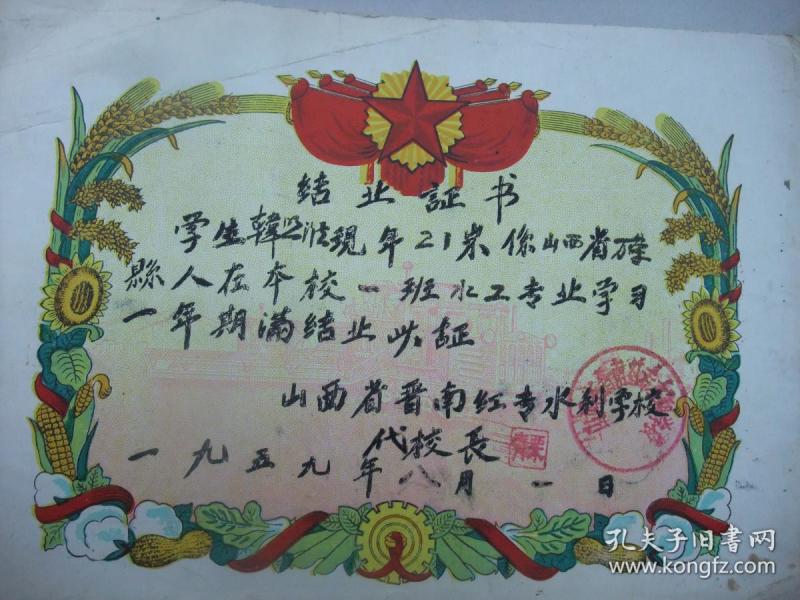 结业証书
学生韓 法現年21岁係山西省
縣人在本校一班水工专业学习
一年期滿结业此証
山西省晋南红专水利学校
代校長
一九五九年八月一日
孔夫子旧书网
www.kongfz.com